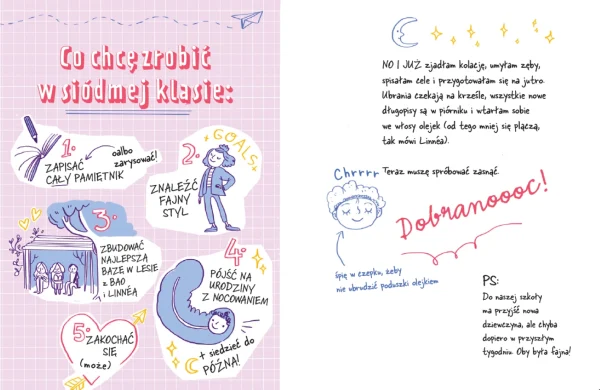 Co chcę zrobić
w siódmej klasie:
1.
oalbo
zarysować!
ZAPISAĆ
CAŁY PAMIĘTNIK
2.
GOALS
ZNALEŹĆ
FAJNY
STYL
3.
ZBUDOWAĆ
NAJLEPSZĄ
BAZĘ W LESIE
z BAO
i LINNÉĄ
4.
PÓJŚĆ NA
URODZINY
Z NOCOWANIEM
+ siedzieć do
PÓŹNA!
5. ZAKOCHAĆ
SIĘ
(może)
NO I JUŻ zjadłam kolację, umyłam zęby,
spisałam cele i przygotowałam się na jutro.
Ubrania czekają na krześle, wszystkie nowe
długopisy są w piórniku i wtarłam sobie
we włosy olejek (od tego mniej się plączą,
tak mówi Linnéa).
Chrrrr
Teraz muszę spróbować zasnąć.
Dobranoooc!
śpię w czepku, żeby
nie ubrudzić poduszki olejkiem
PS:
Do naszej szkoły
ma przyjść nowa
dziewczyna, ale chyba
dopiero w przyszłym
tygodniu. Oby była fajna!